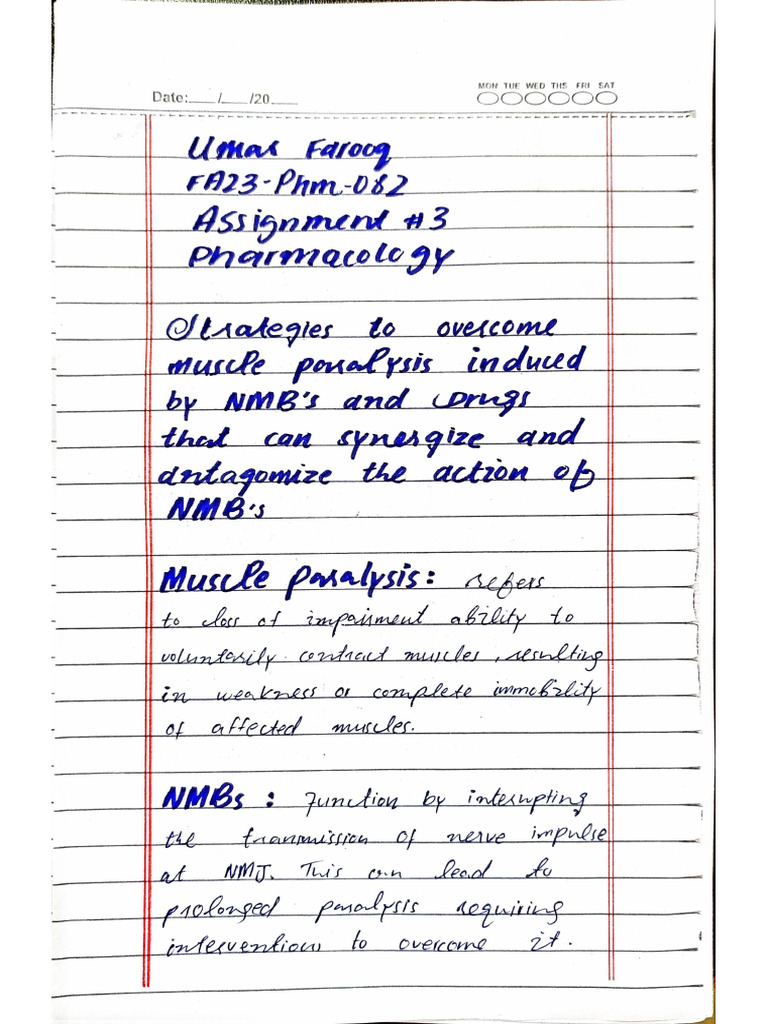 MON TUE WED THS FRI SAT
Date:___/___/20___
Umar Farooq
FA23-Phm-082
Assignment #3
Pharmacology
Strategies to overcome
muscle paralysis induced
by NMB's and Drugs
that can synergize and
antagomize the action of
NMB's
Muscle Paralysis: refers
to loss of impairment ability to
voluntarily contract muscles, resulting
in weakness or complete immobility
of affected muscles.
NMBs: Function by interrupting
the transmission of nerve impulse
at NMJ. This can lead to
prolonged paralysis requiring
interventions to overcome it.